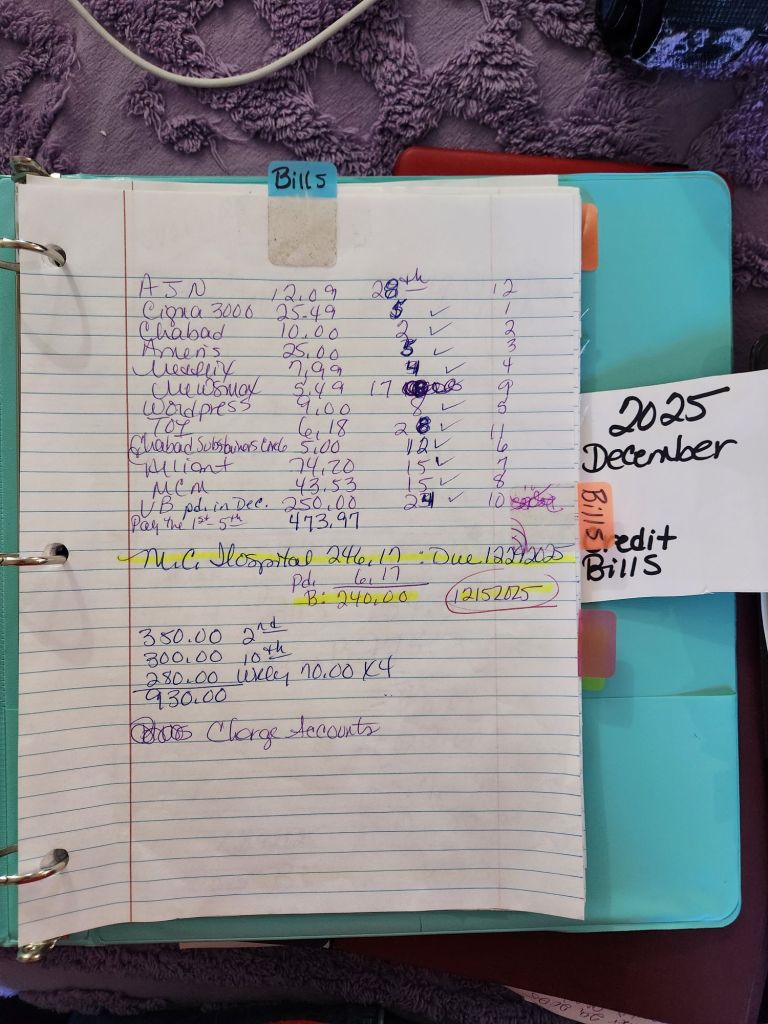 Bills
AJN 12.09 28th 12
Cigna 3000 25.49 5 ✓ 1
Chabad 10.00 2 ✓ 2
25.00 5 ✓ 3
7,99 4 ✓ 4
Newsmax 5,49 17 9
Wordpress 9.00 8 ✓ 5
TOY 6,18 28 ✓ 11
Chabad 5,00 12 ✓ 6
74,20 15 ✓ 7
MCM 43.53 15 ✓ 8
VB pd. in Dec. 250.00 24 ✓ 10
Pay the 1st 5th 473.97
M.C. Hospital 246,17 : Due 12292025
Pd. 6,17
B: 240.00 12152025
350.00 2nd
300.00 10th
280.00 Wkly 70.00 X4
930.00
Charge Accounts
2025
December
Bills
Credit
Bills